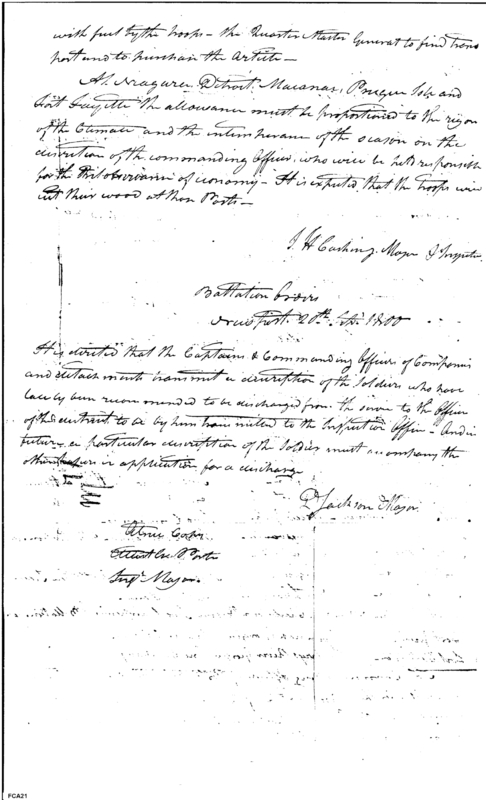 with fuel by the Troops – the Quarter Master General to find trans
port and to purchase the Article –
At Niagara, Detroit, Macanac, Presque Isle and
Fort Fayette the allowance must be proportioned to the rigor
of the Climate and the intemperance of the season on the
discretion of the commanding Officer, who will be held responsible
for the observance of economy – It is expected that the troops will
cut their wood at those Posts –
T. H Cushing, Major & Inspector
Battalion Orders
20th Sept. 1800
It is directed that the Captains & Commanding Officers of Companies
and detachments transmit a description of the Soldiers who have
lately been recommended to be discharged from the service to the Officer
of the district to be by him transmitted to the Inspection Office – And in
future a particular description of the Soldier must accompany the
application for a discharge
D Jackson Major
True Copy
Major
FCA21